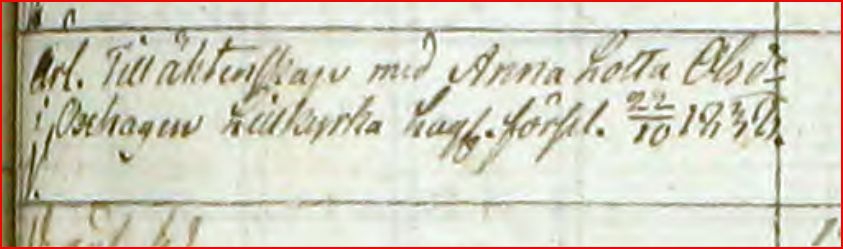 Arl. Till äktenskap med Anna Lotta Olsdr
i Oxhagen Lillkyrka hafl. förfl. 22/10 1838.